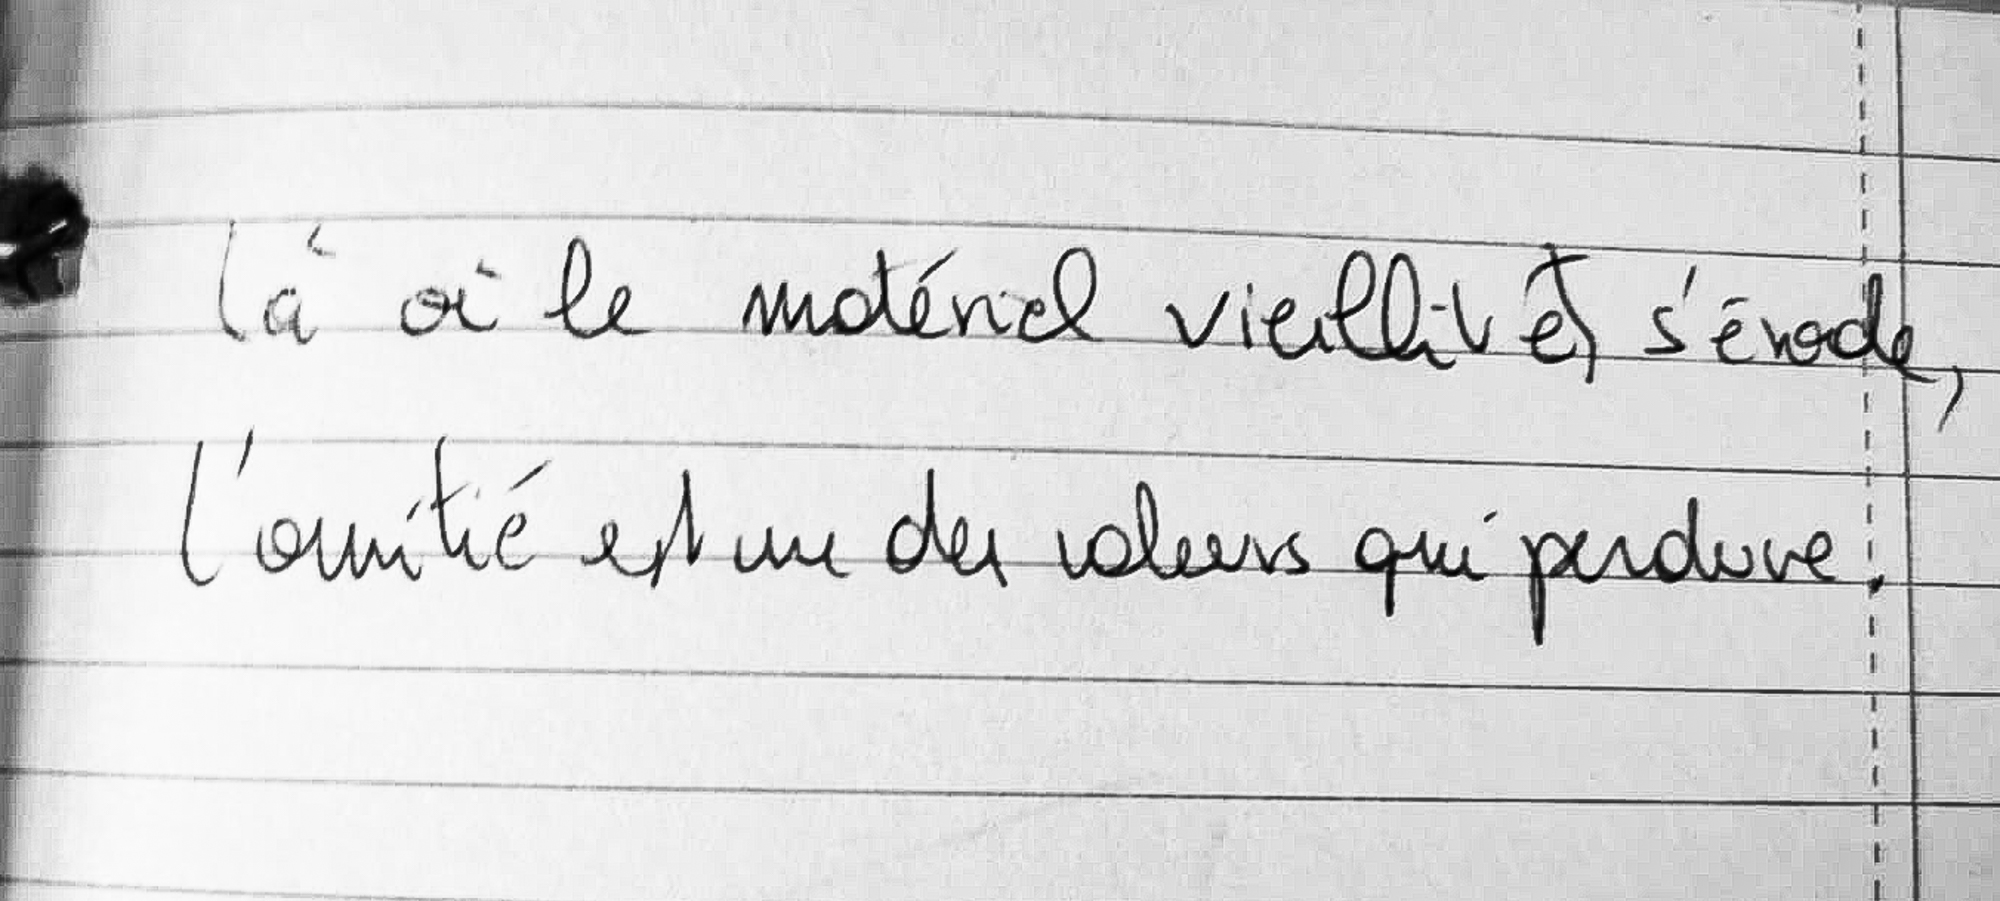 là où le matériel vieillit et s'érode,
l'amitié est une des valeurs qui perdure.